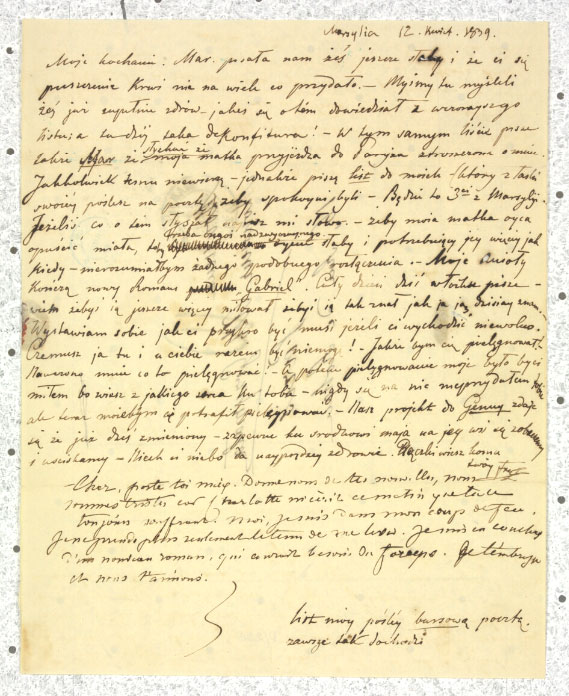 Marsylia 12. Kwiet. 1839.
Moje kochanie. Mar. pisała nam żeś jeszcze słaby i że ci się
puszczenie Krwi nie na wiele co przydało. — Myśmy tu myśleli
żeś już zupełnie zdrów jakeś się o tem dowiedział z wczorajszego
listu; a tu dziś taka dekonfitura! — W tym samym liście pisze
także Mar że słychać że moja matka przyjeżdża do Paryża zatrwożona o mnie.
Jakkolwiek temu niewierzę — jednakże piszę list do moich który z łaski
swojej poślesz na pocztę żeby spokojni byli — Będzie to 3ci z Marsylji.
Jeżeli co o tem słyszał napisz mi słowo. — żeby moja matka ojca
opuścić miała, trzeba czegoś nadzwyczajnego. — ojciec słaby i potrzebujący jej więcej jak
kiedy — nierozumiałbym żadnego podobnego rozłączenia. — Mój anioł
kończą nowy Romans Gabriel. Cały dzień dziś w łóżku pisze —
wiesz żebyś ją jeszcze więcej miłował żebyś ją tak znał jak ja ją dzisiaj znam.
Wystawiam sobie jak ci przykro być musi jeżeli ci wychodzić niewolno.
Czemuż ja tu i u ciebie razem być niemogę! — Jakże bym cię pielęgnował.
Nauczono mnie co to pielęgnować! — A pewnie pielęgnowanie moje było by ci
miłem bo wiesz z jakiego serca ku tobie — nigdy się na nic nieprzydałem tobie
ale teraz możebym cię potrafił pielęgnować. — Nasz projekt do Genuy zdaje
się że już dziś zmieniony — zapewne ku środkowi maja na jej wsi się zobaczemy
i uściskamy — Niech ci niebo da najprędzej zdrowie.
Twój Fryc
Cher, porte toi mieux. Donne nous de tes nouvelles, nous
sommes tristes car Charlotte m'écrit ce matin que tu es
toujours souffrant. Moi, je suis dans mon coup de feu.
Je ne prends pas seulement le temps de me lever. Je suis en couches
d'un nouveau roman, qui aura besoin de forceps. Je t'embrasse
et nous t'aimons.
list mój poślej bursową pocztą.
zawsze tak dochodzi